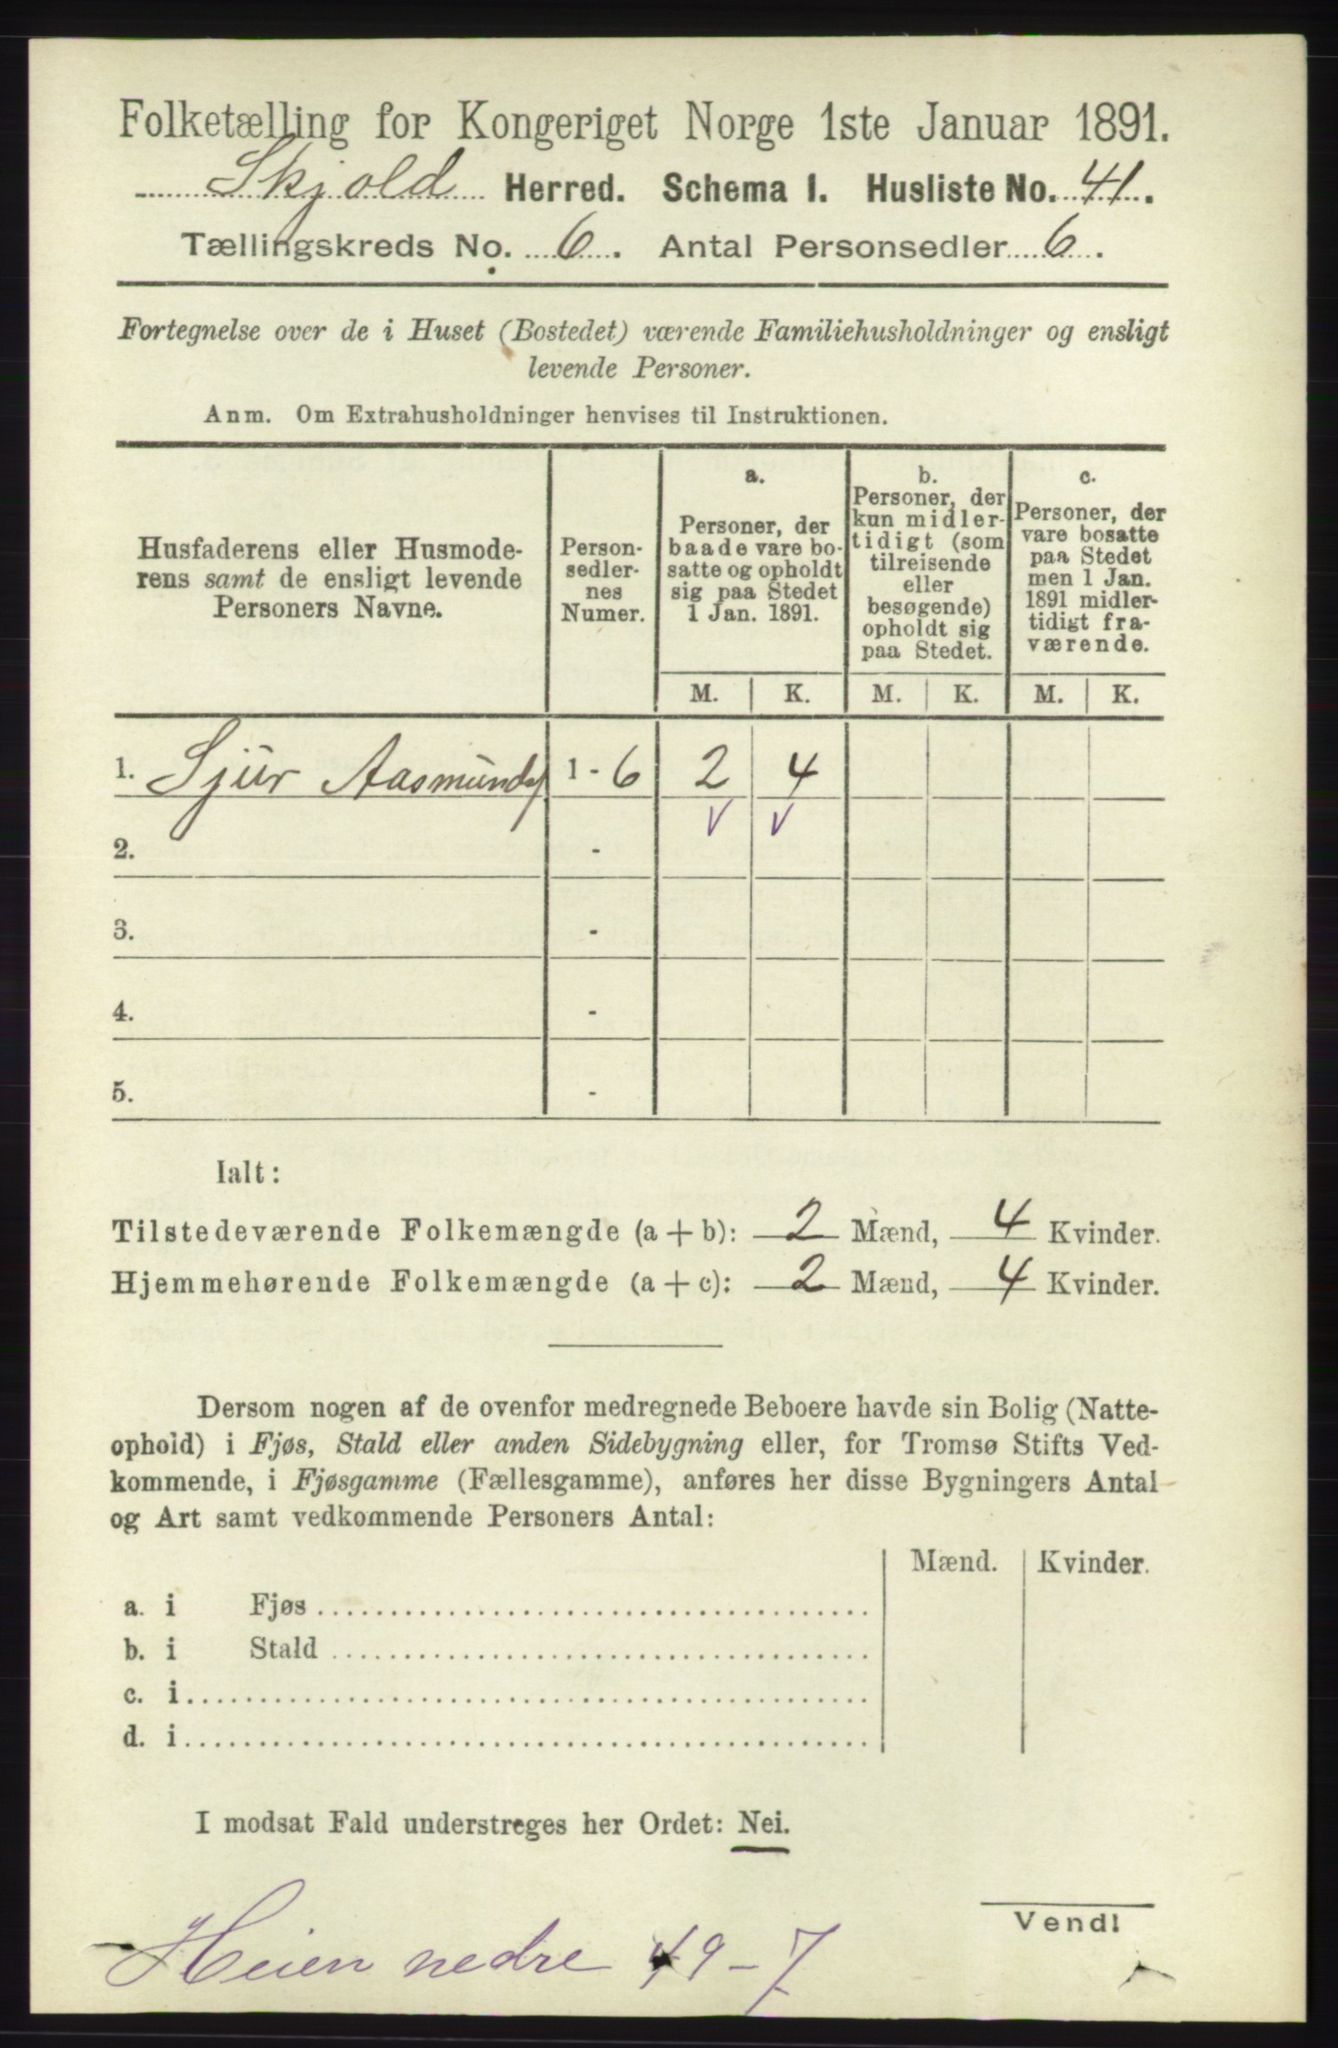 Folketælling for Kongeriget Norge 1ste Januar 1891.
Skjold Herred. Schema I. Husliste No. 41.
Tællingskreds No. 6. Antal Personsedler 6.
Fortegnelse over de i Huset (Bostedet) værende Familiehusholdninger og ensligt
levende Personer.
Anm. Om Extrahusholdninger henvises til Instruktionen.
Husfaderens eller Husmode-
rens samt de ensligt levende
Personers Navne.
Person-
sedler-
nes
Numer.
a.
Personer, der
baade vare bo-
satte og opholdt
sig paa Stedet
1 Jan. 1891.
b.
Personer, der
kun midler-
tidigt (som
tilreisende
eller
besøgende)
opholdt sig
paa Stedet.
c.
Personer, der
vare bosatte
paa Stedet
men 1 Jan.
1891 midler-
tidigt fra-
værende.
M. K. M. K. M. K.
1. Sjur Aasmunds 1 - 6 2 4
2. -
3. -
4. -
5. -
Ialt:
Tilstedeværende Folkemængde (a + b): 2 Mænd, 4 Kvinder.
Hjemmehørende Folkemængde (a + c): 2 Mænd, 4 Kvinder.
Dersom nogen af de ovenfor medregnede Beboere havde sin Bolig (Natte-
ophold) i Fjøs, Stald eller anden Sidebygning eller, for Tromsø Stifts Ved-
kommende, i Fjøsgamme (Fællesgamme), anføres her disse Bygningers Antal
og Art samt vedkommende Personers Antal:
Mænd. Kvinder.
a. i Fjøs
b. i Stald
c. i
d. i
I modsat Fald understreges her Ordet: Nei.
Vend!
Heien nedre 49 - 7